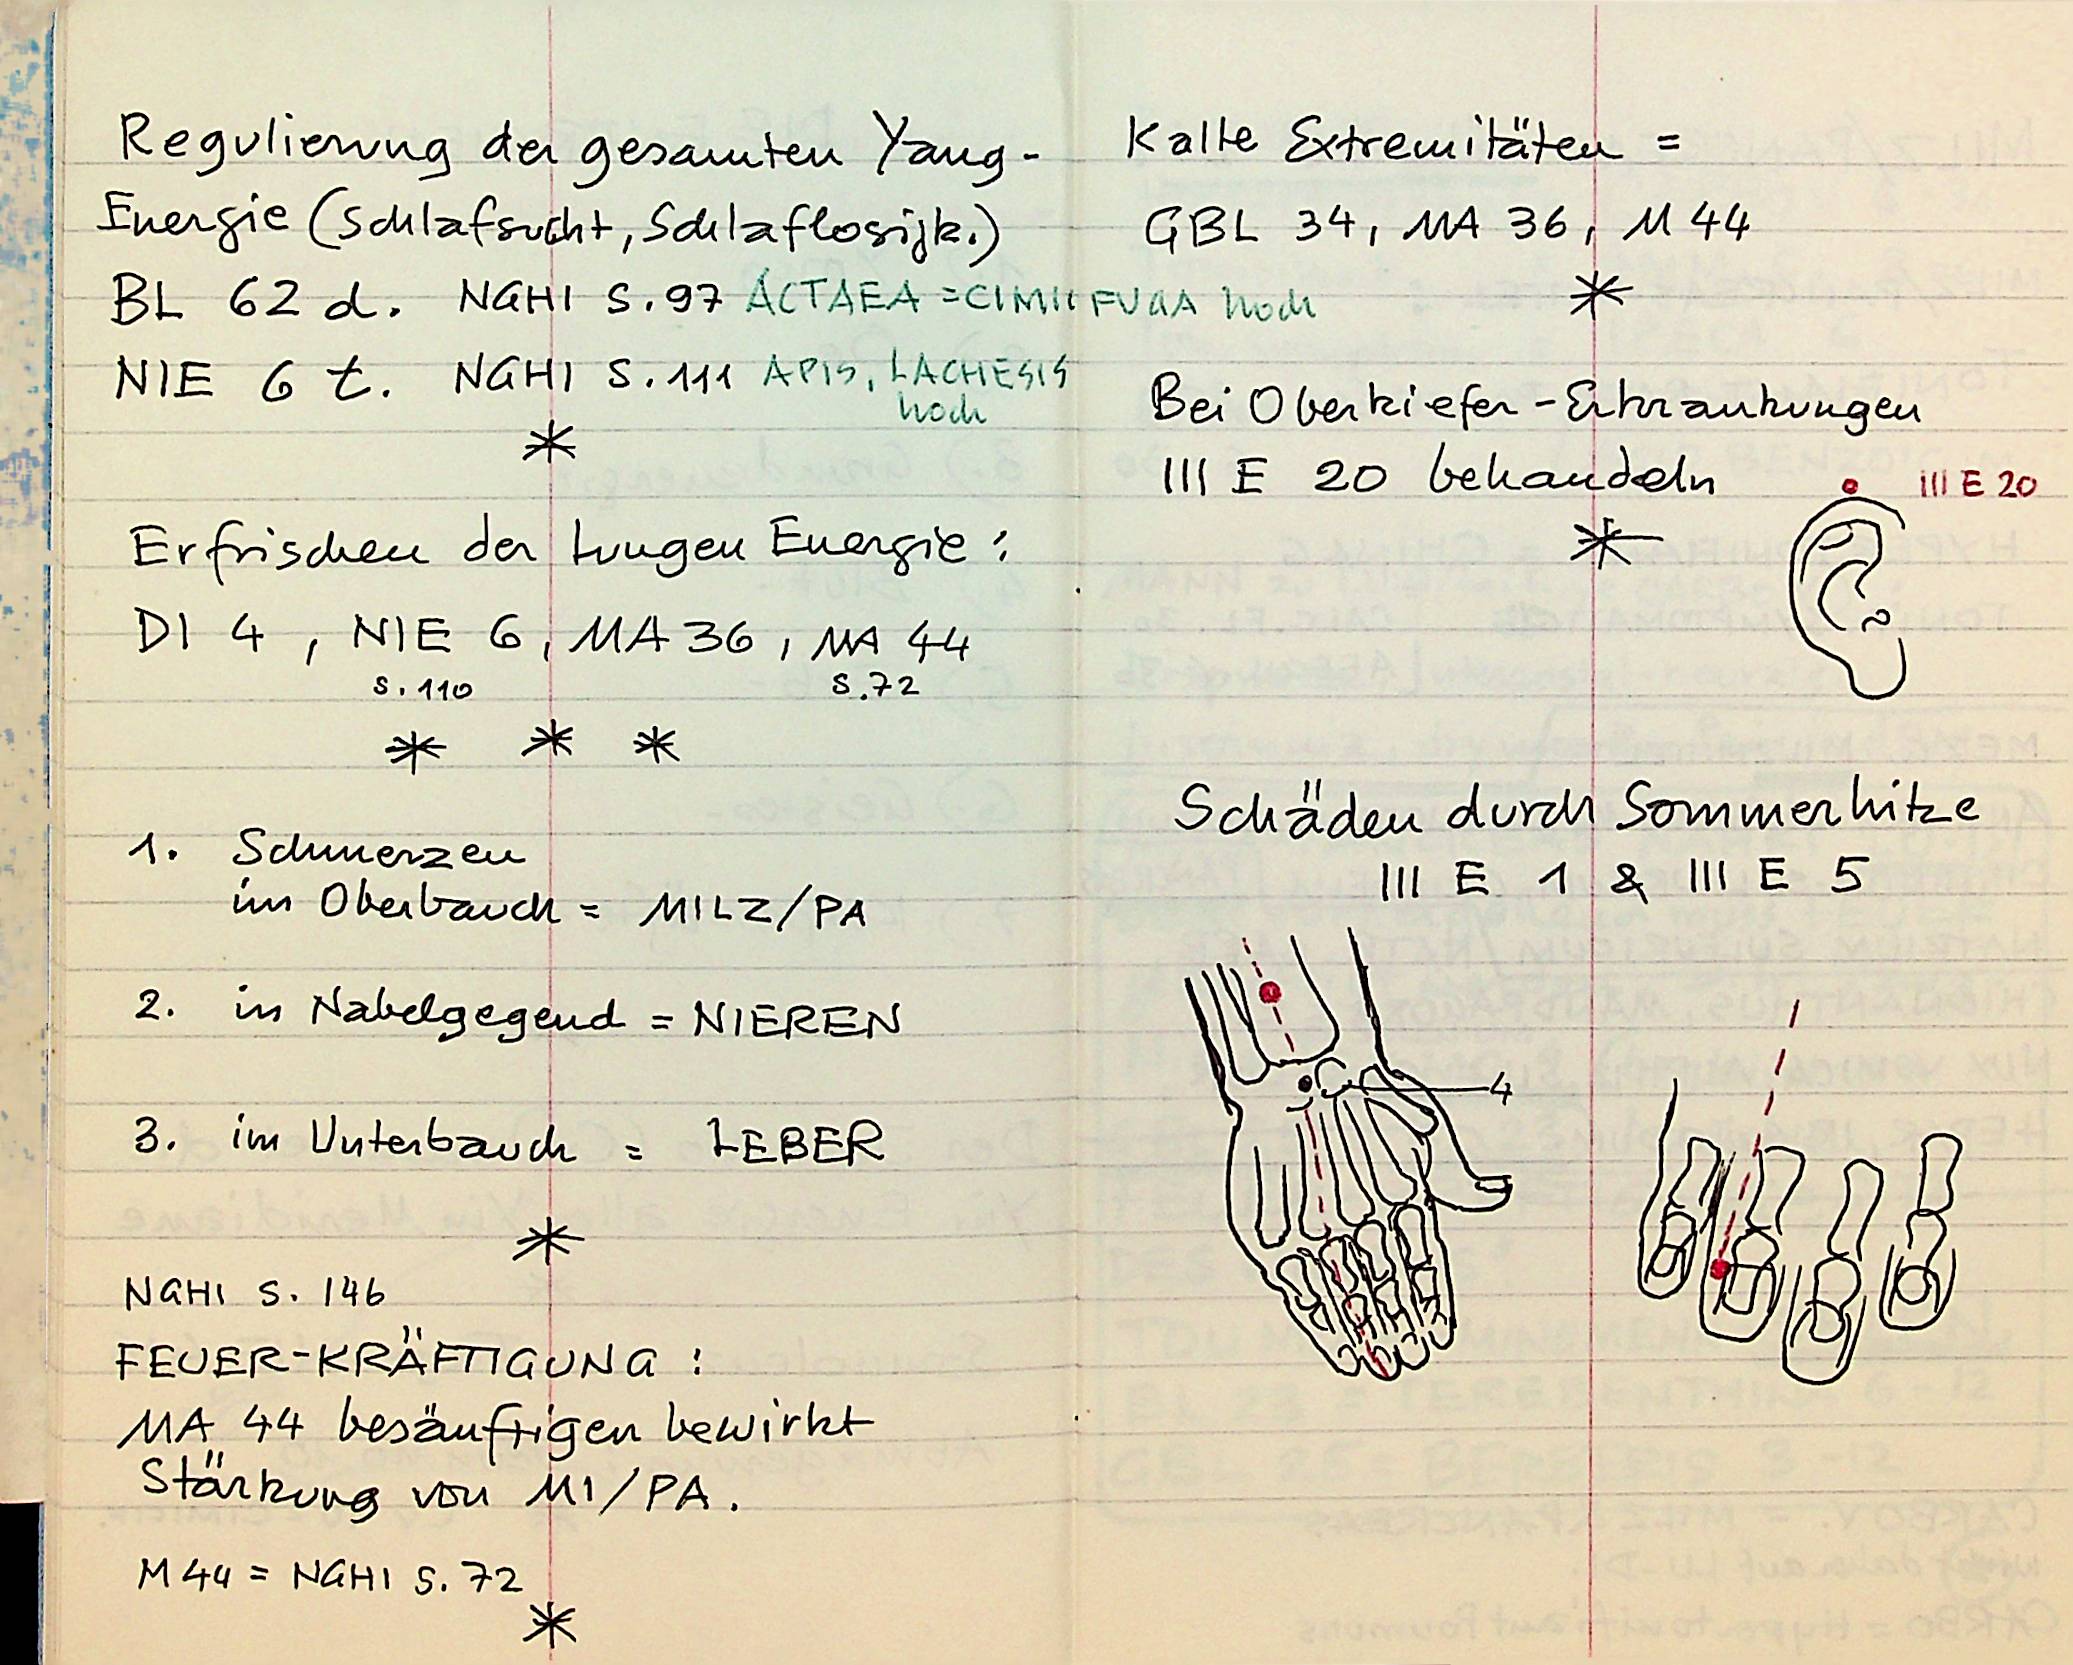 Regulierung der gesamten Yang-
Energie (Schlafsucht, Schlaflosigk.)
BL 62 d. NGHI S. 97 ACTAEA = CIMICIFUGA hoch
NIE 6 t. NGHI S. 111 APIS, LACHESIS
hoch
*
Erfrischen der Lungen Energie:
DI 4, NIE 6, MA 36, MA 44
S. 110 S. 72
* * *
1. Schmerzen
im Oberbauch = MILZ/PA
2. in Nabelgegend = NIEREN
3. im Unterbauch = LEBER
*
NGHI S. 146
FEUER-KRÄFTIGUNG:
MA 44 besänftigen bewirkt
Stärkung von MI/PA.
M 44 = NGHI S. 72
*
Kalte Extremitäten =
GBL 34, MA 36, M 44
*
Bei Oberkiefer-Erkrankungen
III E 20 behandeln
III E 20
*
Schäden durch Sommerhitze
III E 1 & III E 5
4